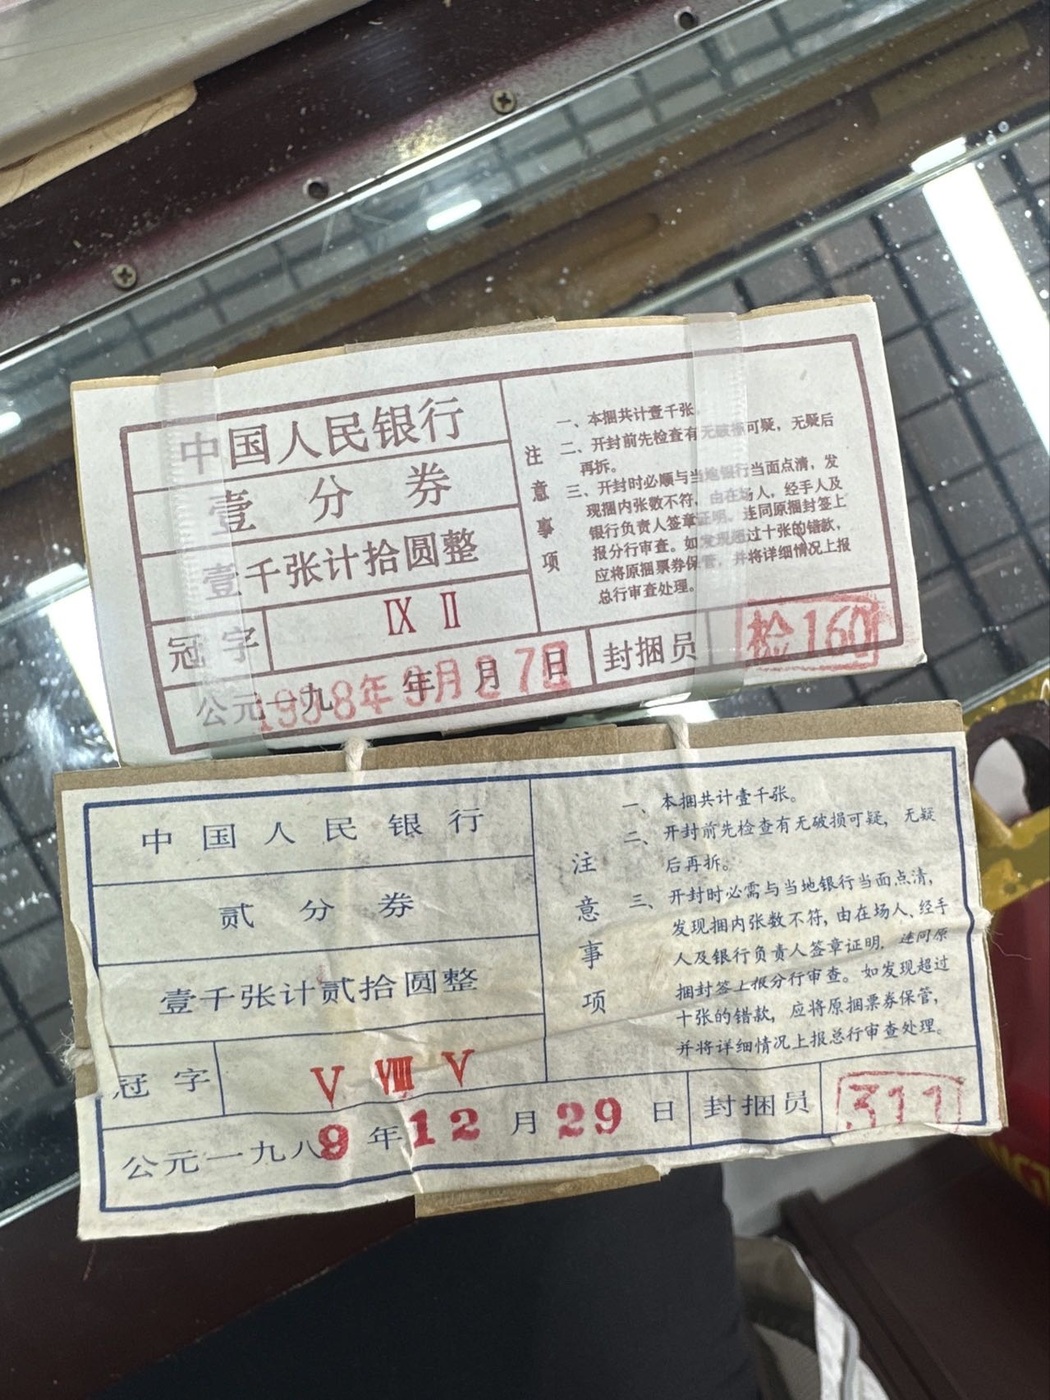 中国人民银行
壹分券
壹千张计拾圆整
冠字 Ⅸ Ⅱ
公元一九 年 月 日
1998年9月27日
注意事项
一、本捆共计壹千张。
二、开封前先检查有无破损可疑，无疑后
再拆。
三、开封时必顺与当地银行当面点清，发
现捆内张数不符，由在场人，经手人及
银行负责人签章证明，连同原捆封签上
报分行审查。如发现超过十张的错款，
应将原捆票券保管，并将详细情况上报
总行审查处理。
封捆员 检160
中国人民银行
贰分券
壹千张计贰拾圆整
冠字 Ⅴ Ⅷ Ⅴ
公元一九八9年12月29日
注意事项
一、本捆共计壹千张。
二、开封前先检查有无破损可疑，无疑
后再拆。
三、开封时必需与当地银行当面点清，
发现捆内张数不符，由在场人、经手
人及银行负责人签章证明，连同原
捆封签上报分行审查。如发现超过
十张的错款，应将原捆票券保管，
并将详细情况上报总行审查处理。
封捆员 311